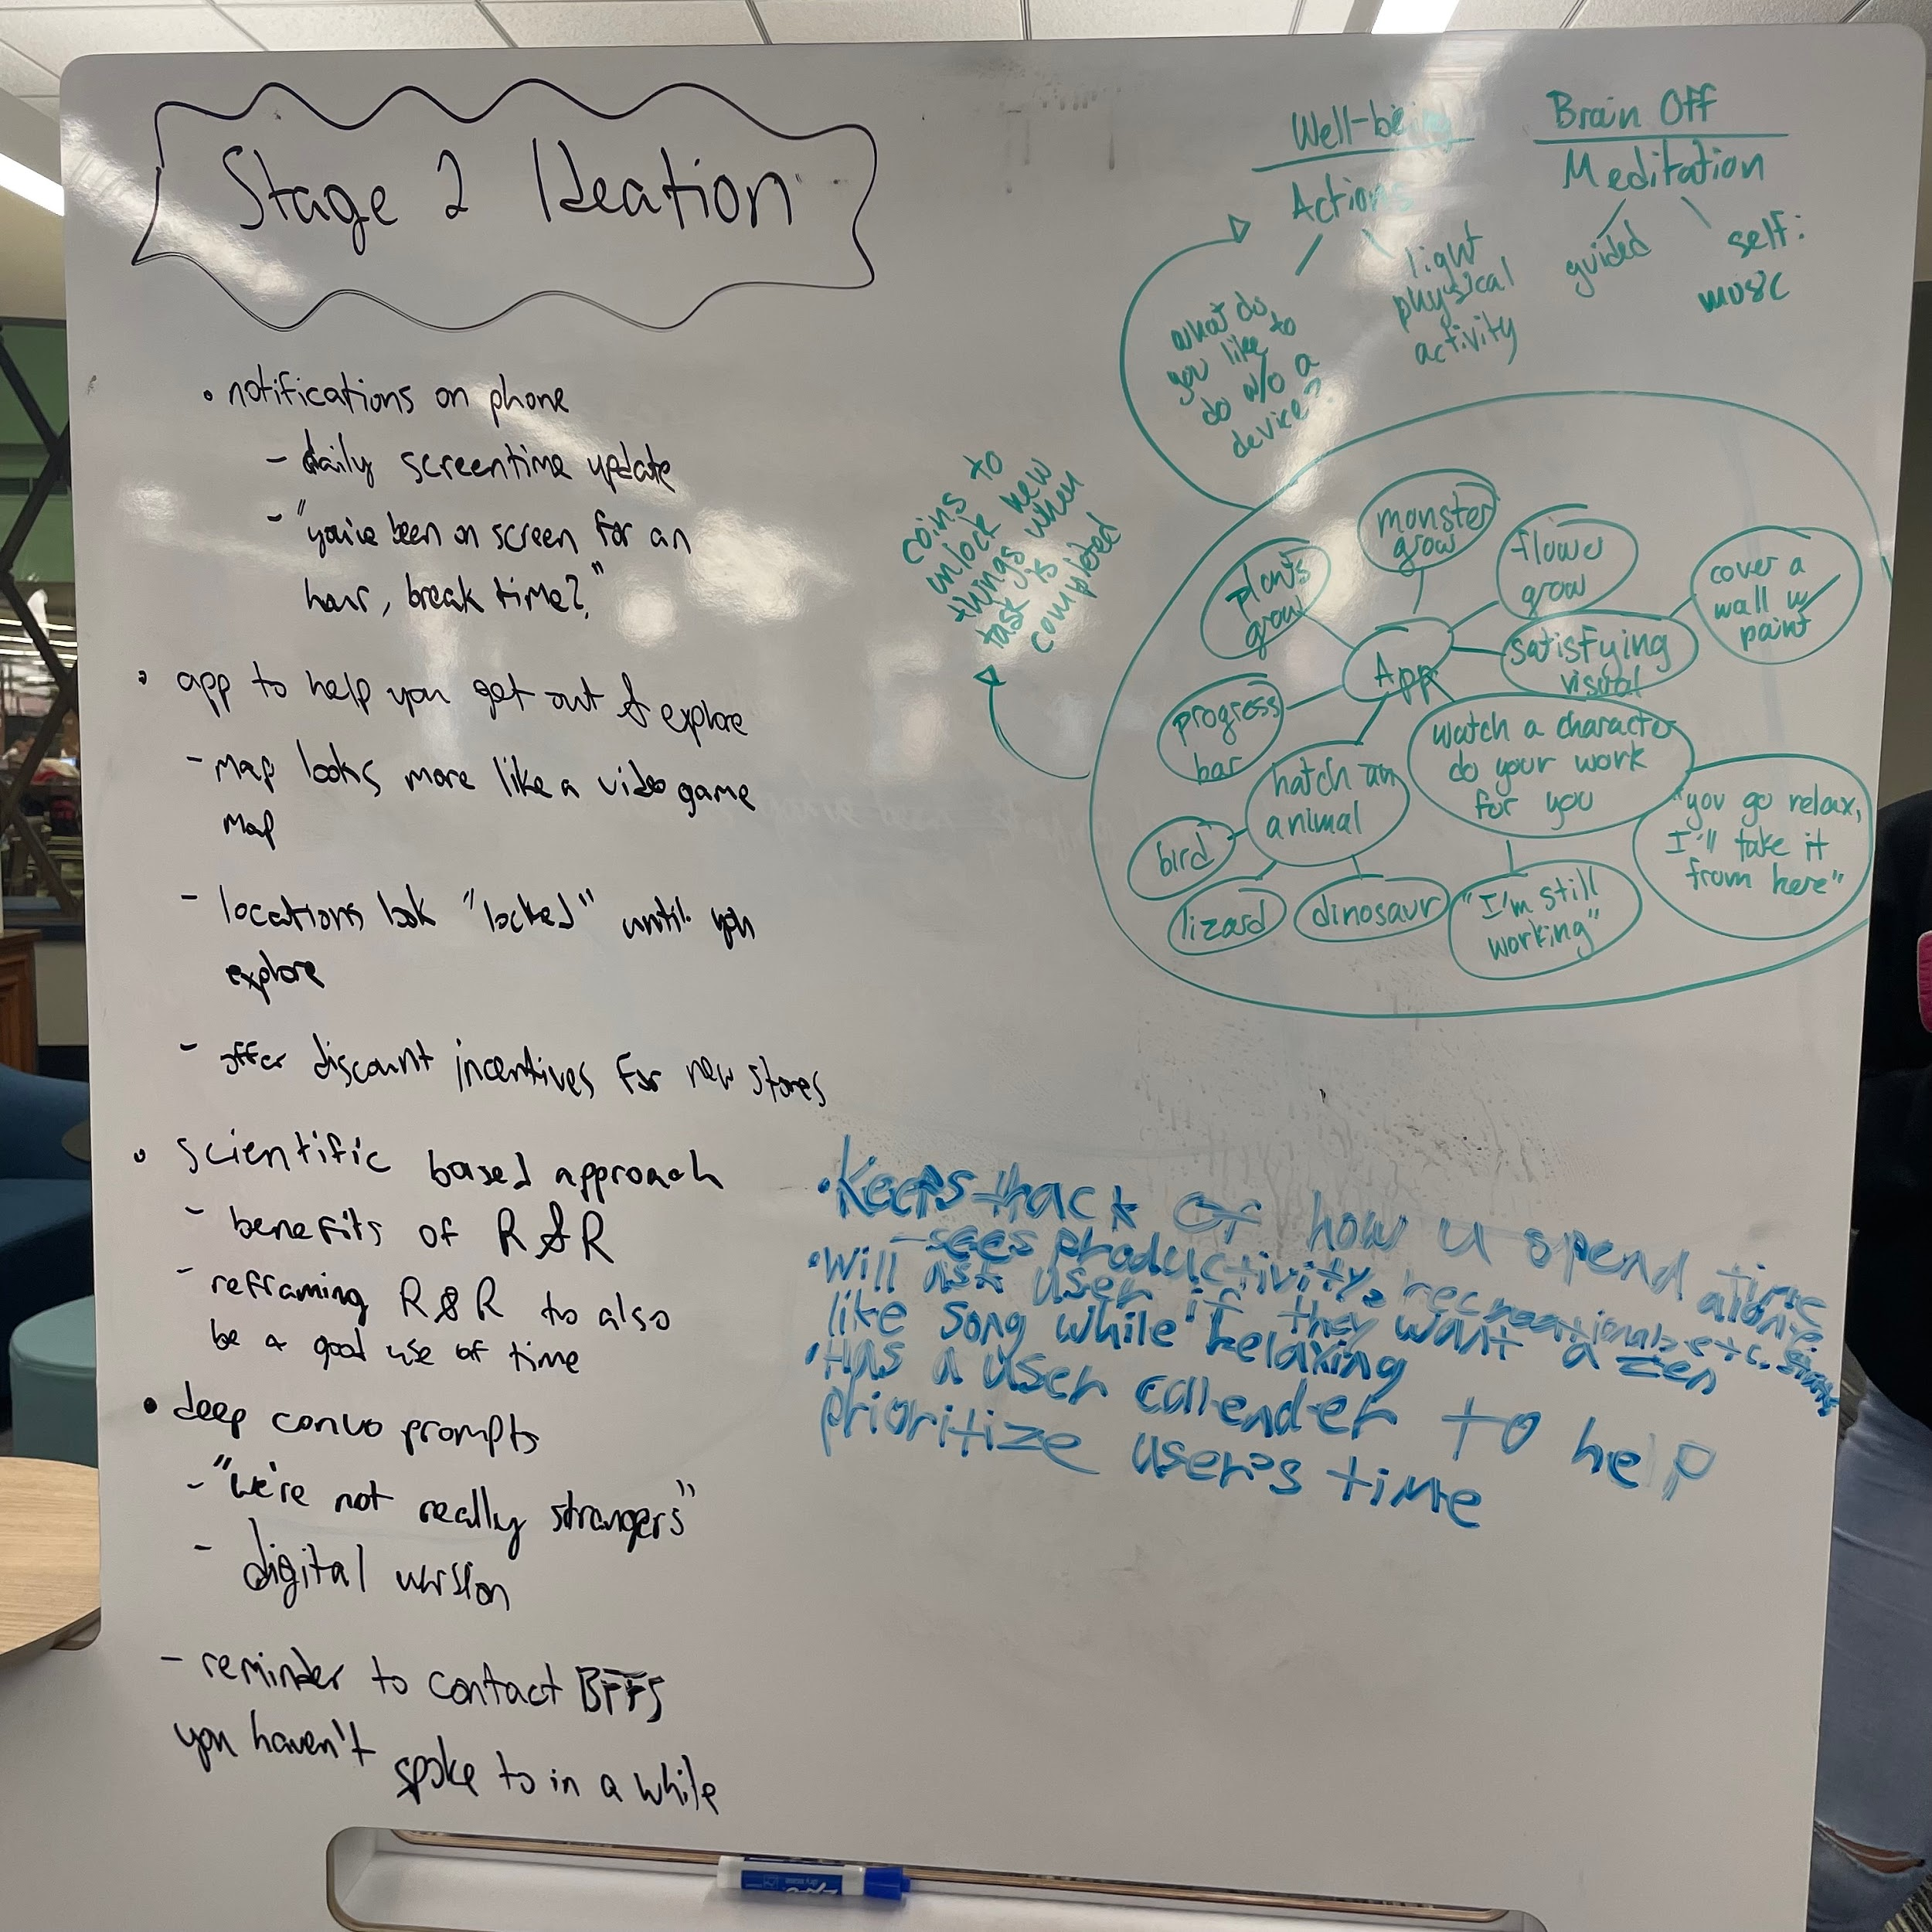 Stage 2 Ideation
• notifications on phone
- daily screentime update
- "you've been on screen for an
hour, break time?"
• app to help you get out & explore
- map looks more like a video game
map
- locations look "locked" until you
explore
- offer discount incentives for new stores
• scientific based approach
- benefits of R&R
- reframing R&R to also
be a good use of time
• deep convo prompts
- "we're not really strangers"
- digital version
- reminder to contact BFFs
you haven't spoke to in a while
Well-being
Actions
what do
you like to
do w/o a
device?
light
physical
activity
Brain Off
Meditation
guided
self:
music
coins to
unlock new
things when
task is
completed
App
monster
grow
flower
grow
plants
grow
satisfying
visual
cover a
wall w/
paint
progress
bar
hatch an
animal
bird
lizard
dinosaur
watch a character
do your work
for you
"I'm still
working"
"you go relax,
I'll take it
from here"
• Keeps track of how u spend time
- sees productivity, recreational, etc. time alone
• Will ask user if they want a zen
like song while relaxing
• Has a user calender to help
prioritize user's time
EXPO